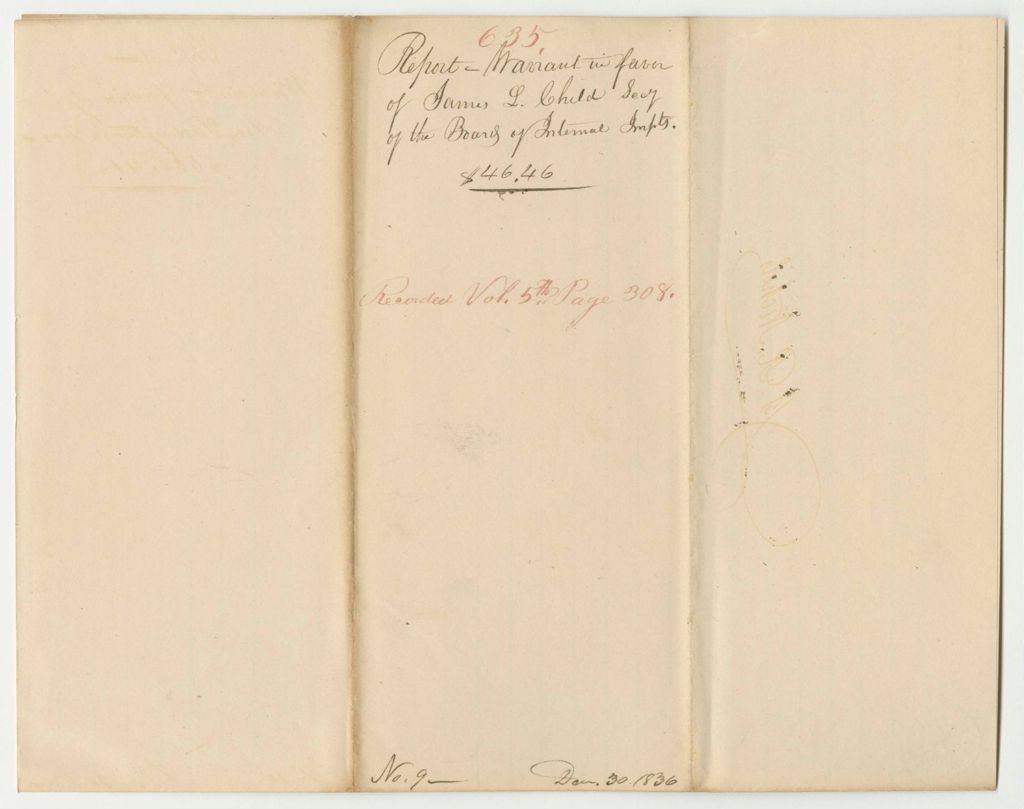 635,
Report - Warrant in favor
of James L. Child Secy
of the Board of Internal Impts.
$46.46
Recorded Vol. 5th Page 308.
No. 9 —
Dec. 30 1836